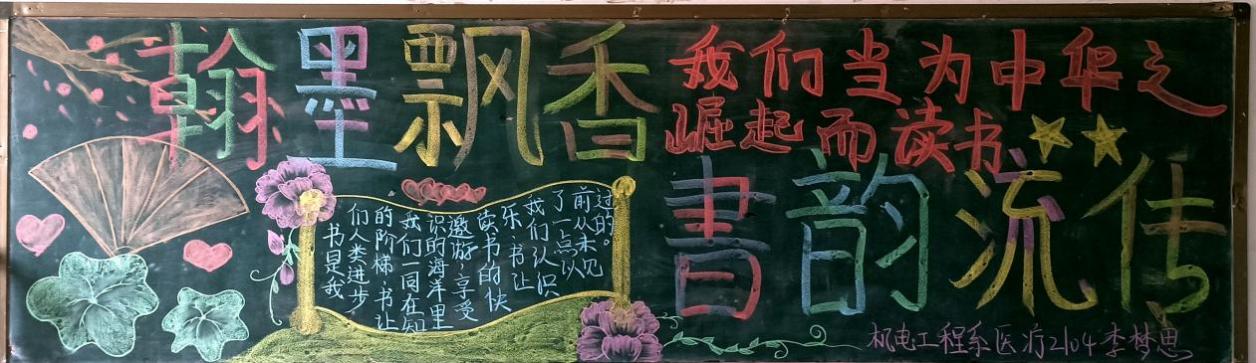 翰墨飘香
我们当为中华之
崛起而读书
書韵流传
书是我
们人类进步
的阶梯，书让
我们一同在知
识的海洋里
遨游，享受
读书的快
乐，书让
我们认识
了一点以
前从未见
过的。
机电工程系医疗2104李梦思